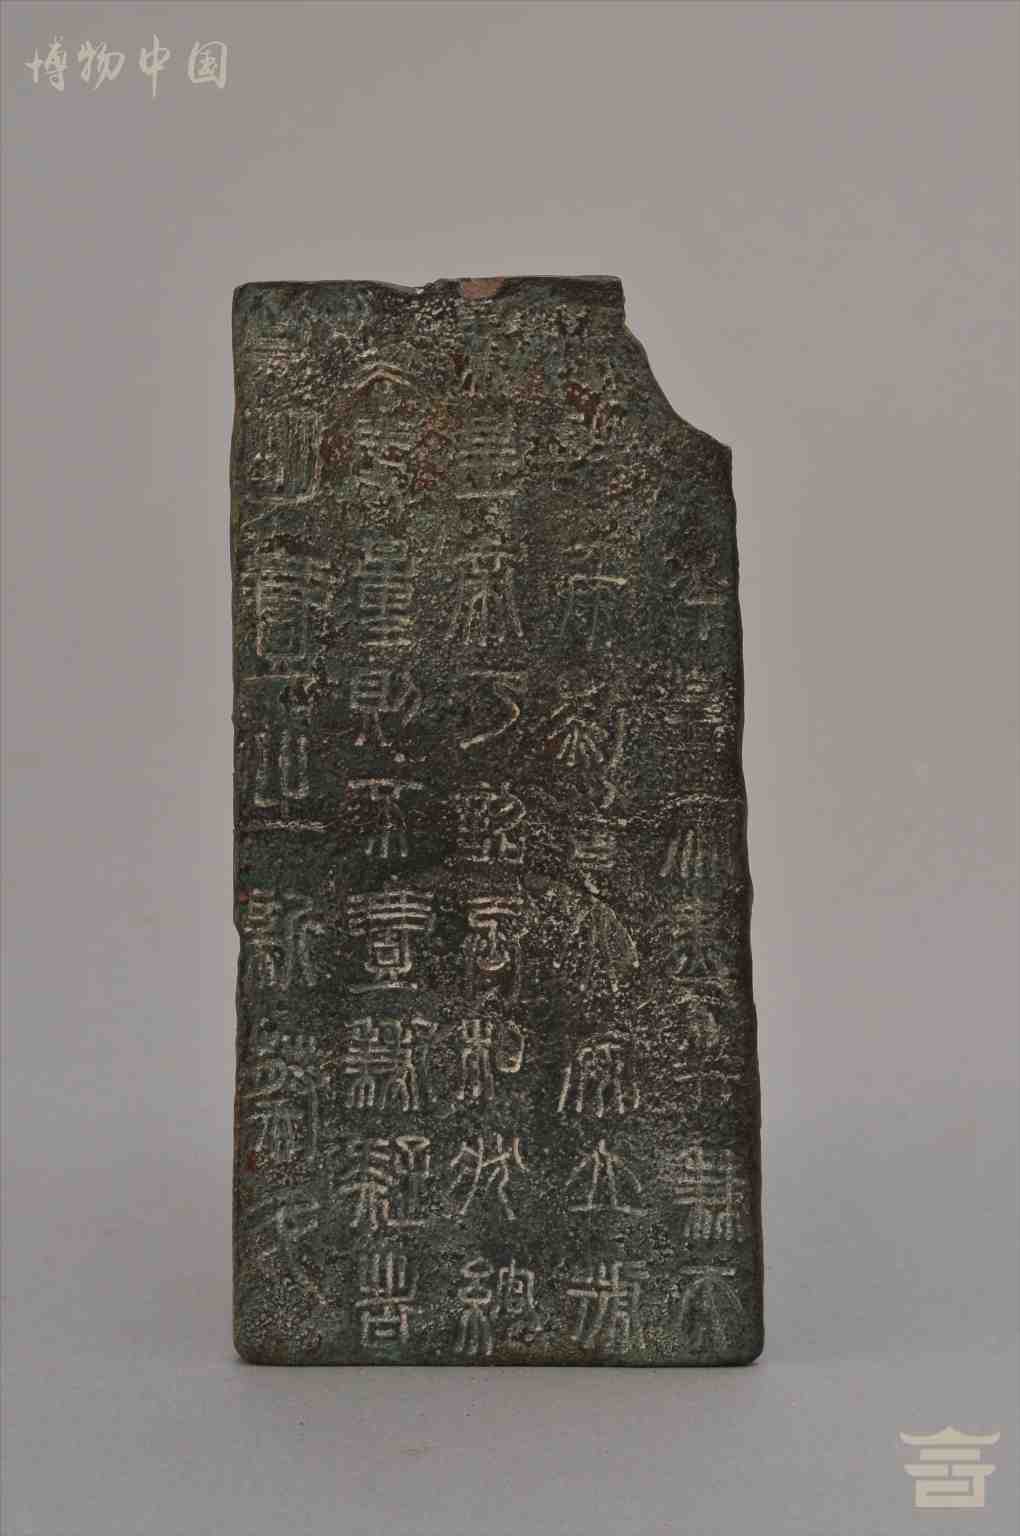 博物中国
年皇帝盡并兼天
諸侯黔首大安立號
為皇帝乃詔丞相狀綰
法度量則不壹歉疑者
皆明壹之